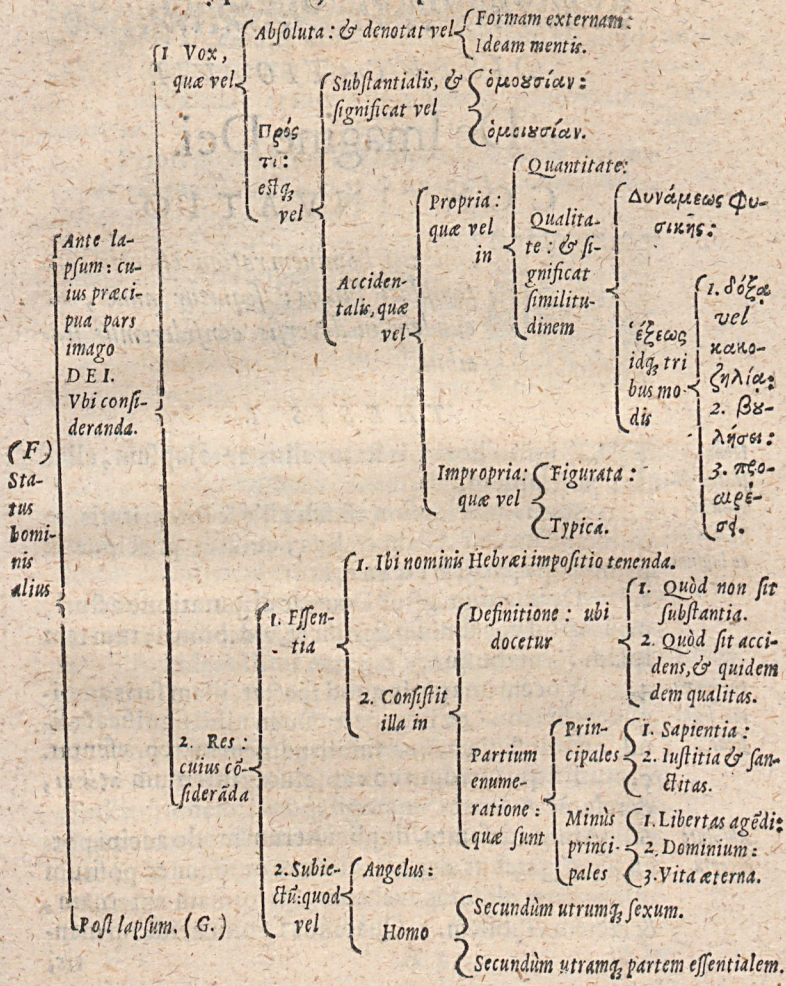 (F)
Sta-
tus
homi-
nis
alius
Ante la-
pſum: cu-
ius præci-
pua pars
imago
DEI.
Vbi conſi-
deranda.
1 Vox,
quæ vel
Abſoluta: & denotat vel
Formam externam:
Ideam mentis.
Πρός
τι:
eſtq́;
vel
Subſtantialis, &
ſignificat vel
ὁμουσίαν:
ὁμοιυσίαν.
Acciden-
talis, quæ
vel
Propria:
quæ vel
in
Quantitate:
Qualita-
te: & ſi-
gnificat
ſimilitu-
dinem
Δυνάμεως φυ-
σικῆς:
ἕξεως
idq́; tri
bus mo-
dis
1. δόξᾳ
vel
κακο-
ζηλίᾳ:
2. βȣ-
λήσει:
3. προ-
αιρέ-
σει.
Impropria:
quæ vel
Figurata:
Typica.
2. Res:
cuius cō-
ſiderāda
1. Eſſen-
tia
1. Ibi nominis Hebræi impoſitio tenenda.
2. Conſiſtit
illa in
Definitione: ubi
docetur
1. Quòd non ſit
ſubſtantia.
2. Quòd ſit acci-
dens, & quidem
dem qualitas.
Partium
enume-
ratione:
quæ ſunt
Prin-
cipales
1. Sapientia:
2. Iuſtitia & ſan-
ctitas.
Minùs
princi-
pales
1. Libertas agēdi:
2. Dominium:
3. Vita æterna.
2. Subie-
ctū: quod
vel
Angelus:
Homo
Secundùm utrumq́; ſexum.
Secundùm utramq́; partem eſſentialem.
Poſt lapſum. (G.)